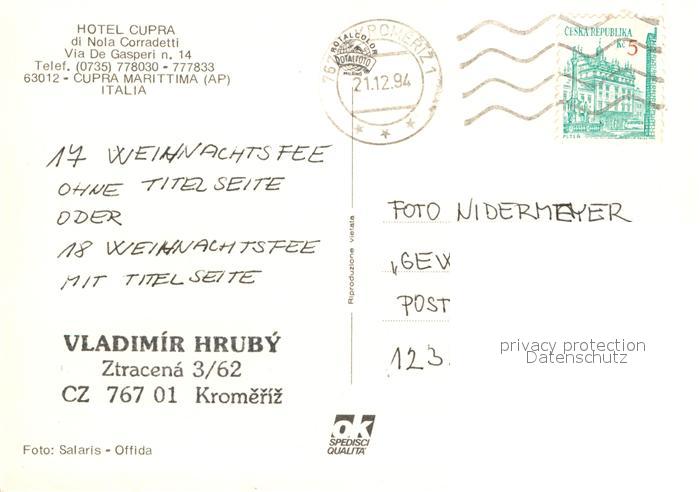 HOTEL CUPRA
di Nola Corradetti
Via De Gasperi n. 14
Telef. (0735) 778030 - 777833
63012 - CUPRA MARITTIMA (AP)
ITALIA
ROTALCOLOR
ROTALFOTO
MILANO
21.12.94
ČESKÁ REPUBLIKA
Kč 5
PLZEŇ
17 WEIHNACHTSFEE
OHNE TITELSEITE
ODER
18 WEIHNACHTSFEE
MIT TITELSEITE
Riproduzione vietata
FOTO NIDERMEYER
„GEW
POST
123
privacy protection
Datenschutz
VLADIMÍR HRUBÝ
Ztracená 3/62
CZ 767 01 Kroměříž
ok
SPEDISCI
QUALITA'
Foto: Salaris - Offida